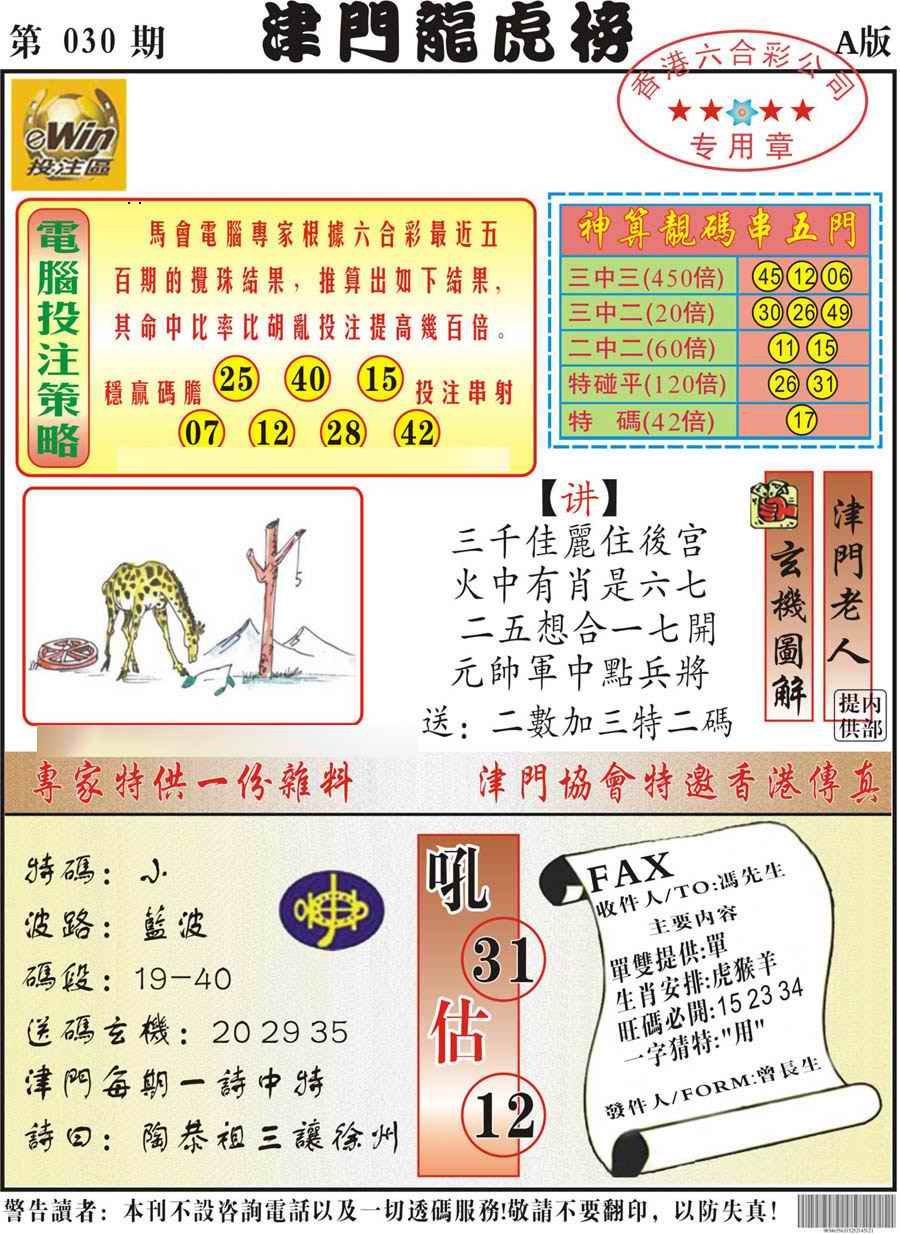 第 030 期
津門龍虎榜
A版
香港六合彩公司
专用章
eWin
投注區
電腦投注策略
馬會電腦專家根據六合彩最近五
百期的攪珠結果，推算出如下結果，
其命中比率比胡亂投注提高幾百倍。
穩贏碼膽 25 40 15 投注串射
07 12 28 42
神算靚碼串五門
三中三(450倍) 45 12 06
三中二(20倍) 30 26 49
二中二(60倍) 11 15
特碰平(120倍) 26 31
特 碼(42倍) 17
5
【讲】
三千佳麗住後宫
火中有肖是六七
二五想合一七開
元帥軍中點兵將
送：二數加三特二碼
玄機圖解
津門老人
内部提供
專家特供一份雜料
津門協會特邀香港傳真
特碼：小
波路：藍波
碼段：19-40
送碼玄機：20 29 35
津門每期一詩中特
詩曰：陶恭祖三讓徐州
吼
31
估
12
FAX
收件人/TO:馮先生
主要内容
單雙提供:單
生肖安排:虎猴羊
旺碼必開:15 23 34
一字猜特:"用"
發件人/FORM:曾長生
警告讀者：本刊不設咨詢電話以及一切透碼服務!敬請不要翻印，以防失真！